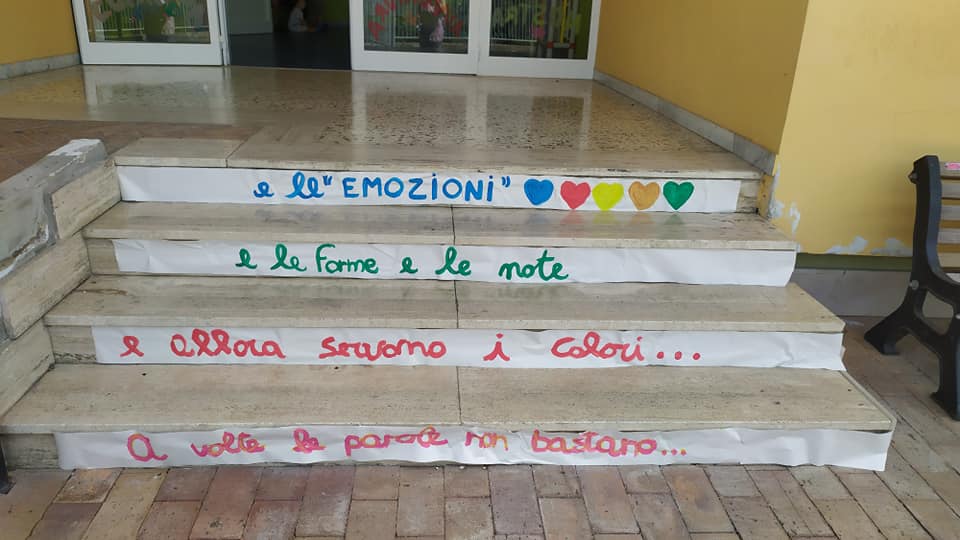 A volte le parole non bastano...
e allora servono i colori...
e le forme e le note
e le "EMOZIONI"